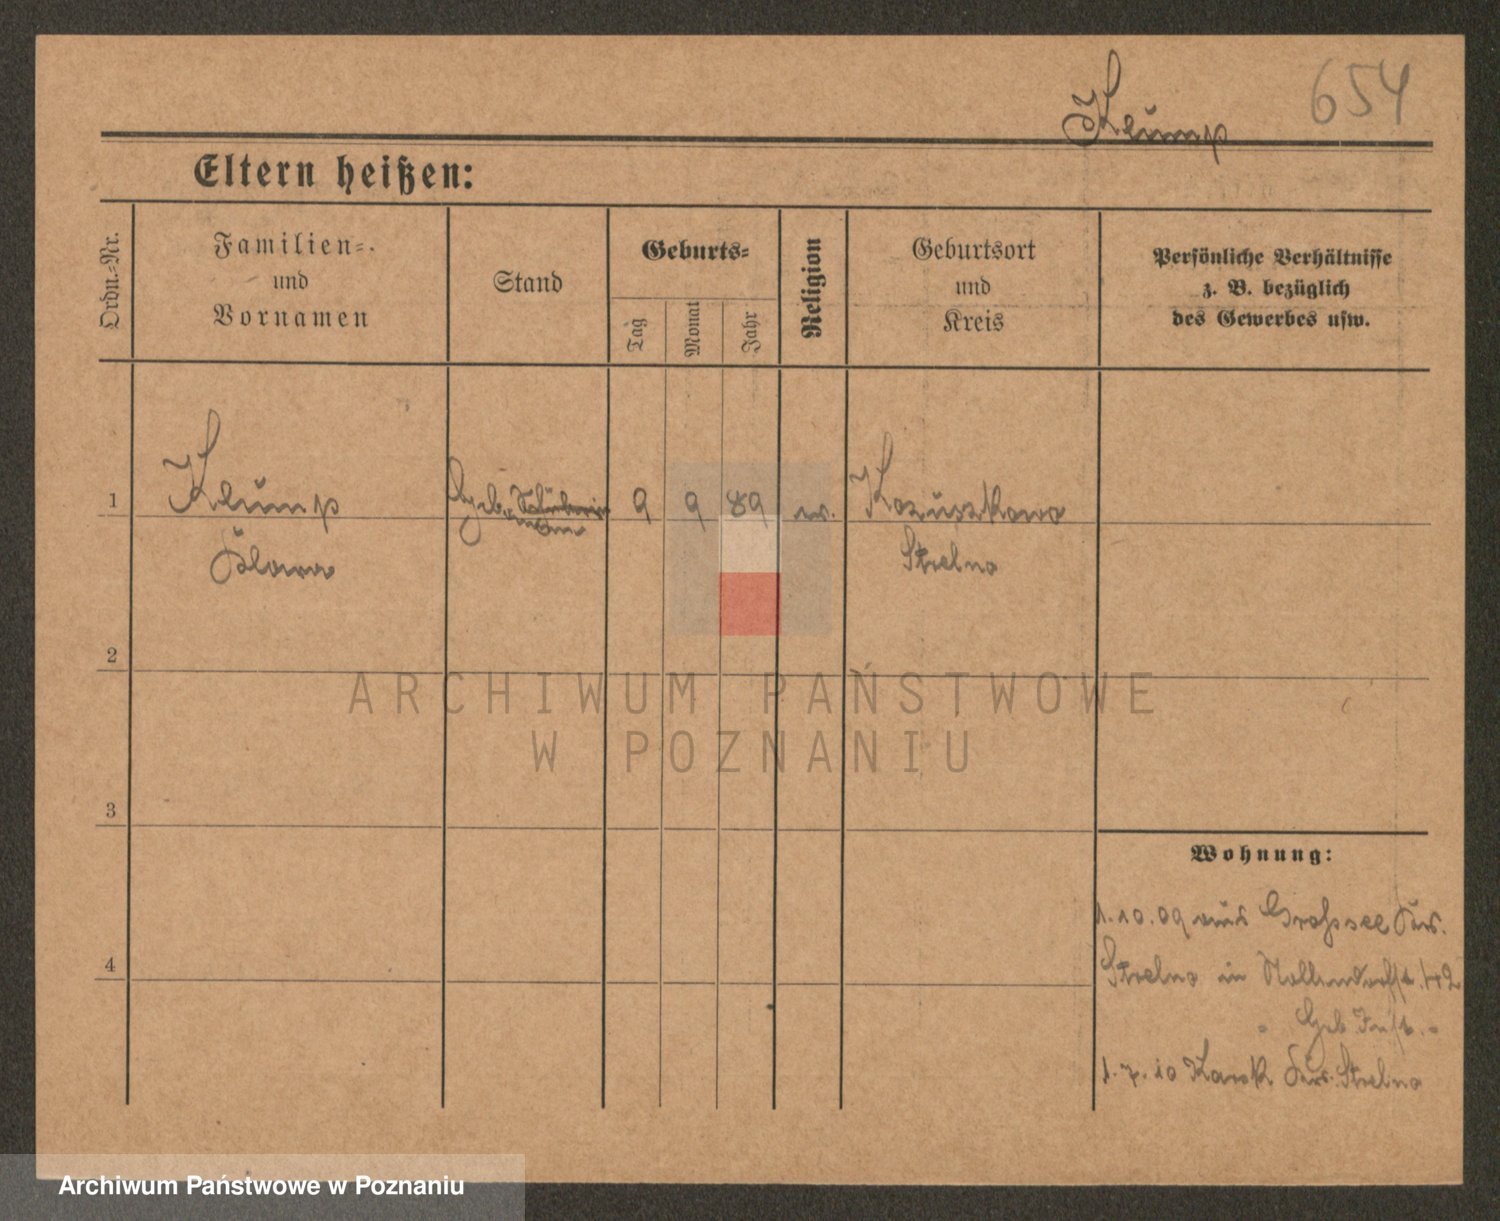 Klump 654
Eltern heißen:
Ordn.-Nr.
Familien-
und
Vornamen
Stand
Geburts-
Tag
Monat
Jahr
Religion
Geburtsort
und
Kreis
Persönliche Verhältnisse
z. B. bezüglich
des Gewerbes usw.
1 Klump 9 9 89 ev. Kozuszkowo
Strelno
2
ARCHIWUM PAŃSTWOWE
W POZNANIU
3
Wohnung:
1.10.09 aus Grosssee Krs.
4
Strelno in Nollendorfst. 42
Geb.
1.7.10 Krs. Strelno
Archiwum Państwowe w Poznaniu